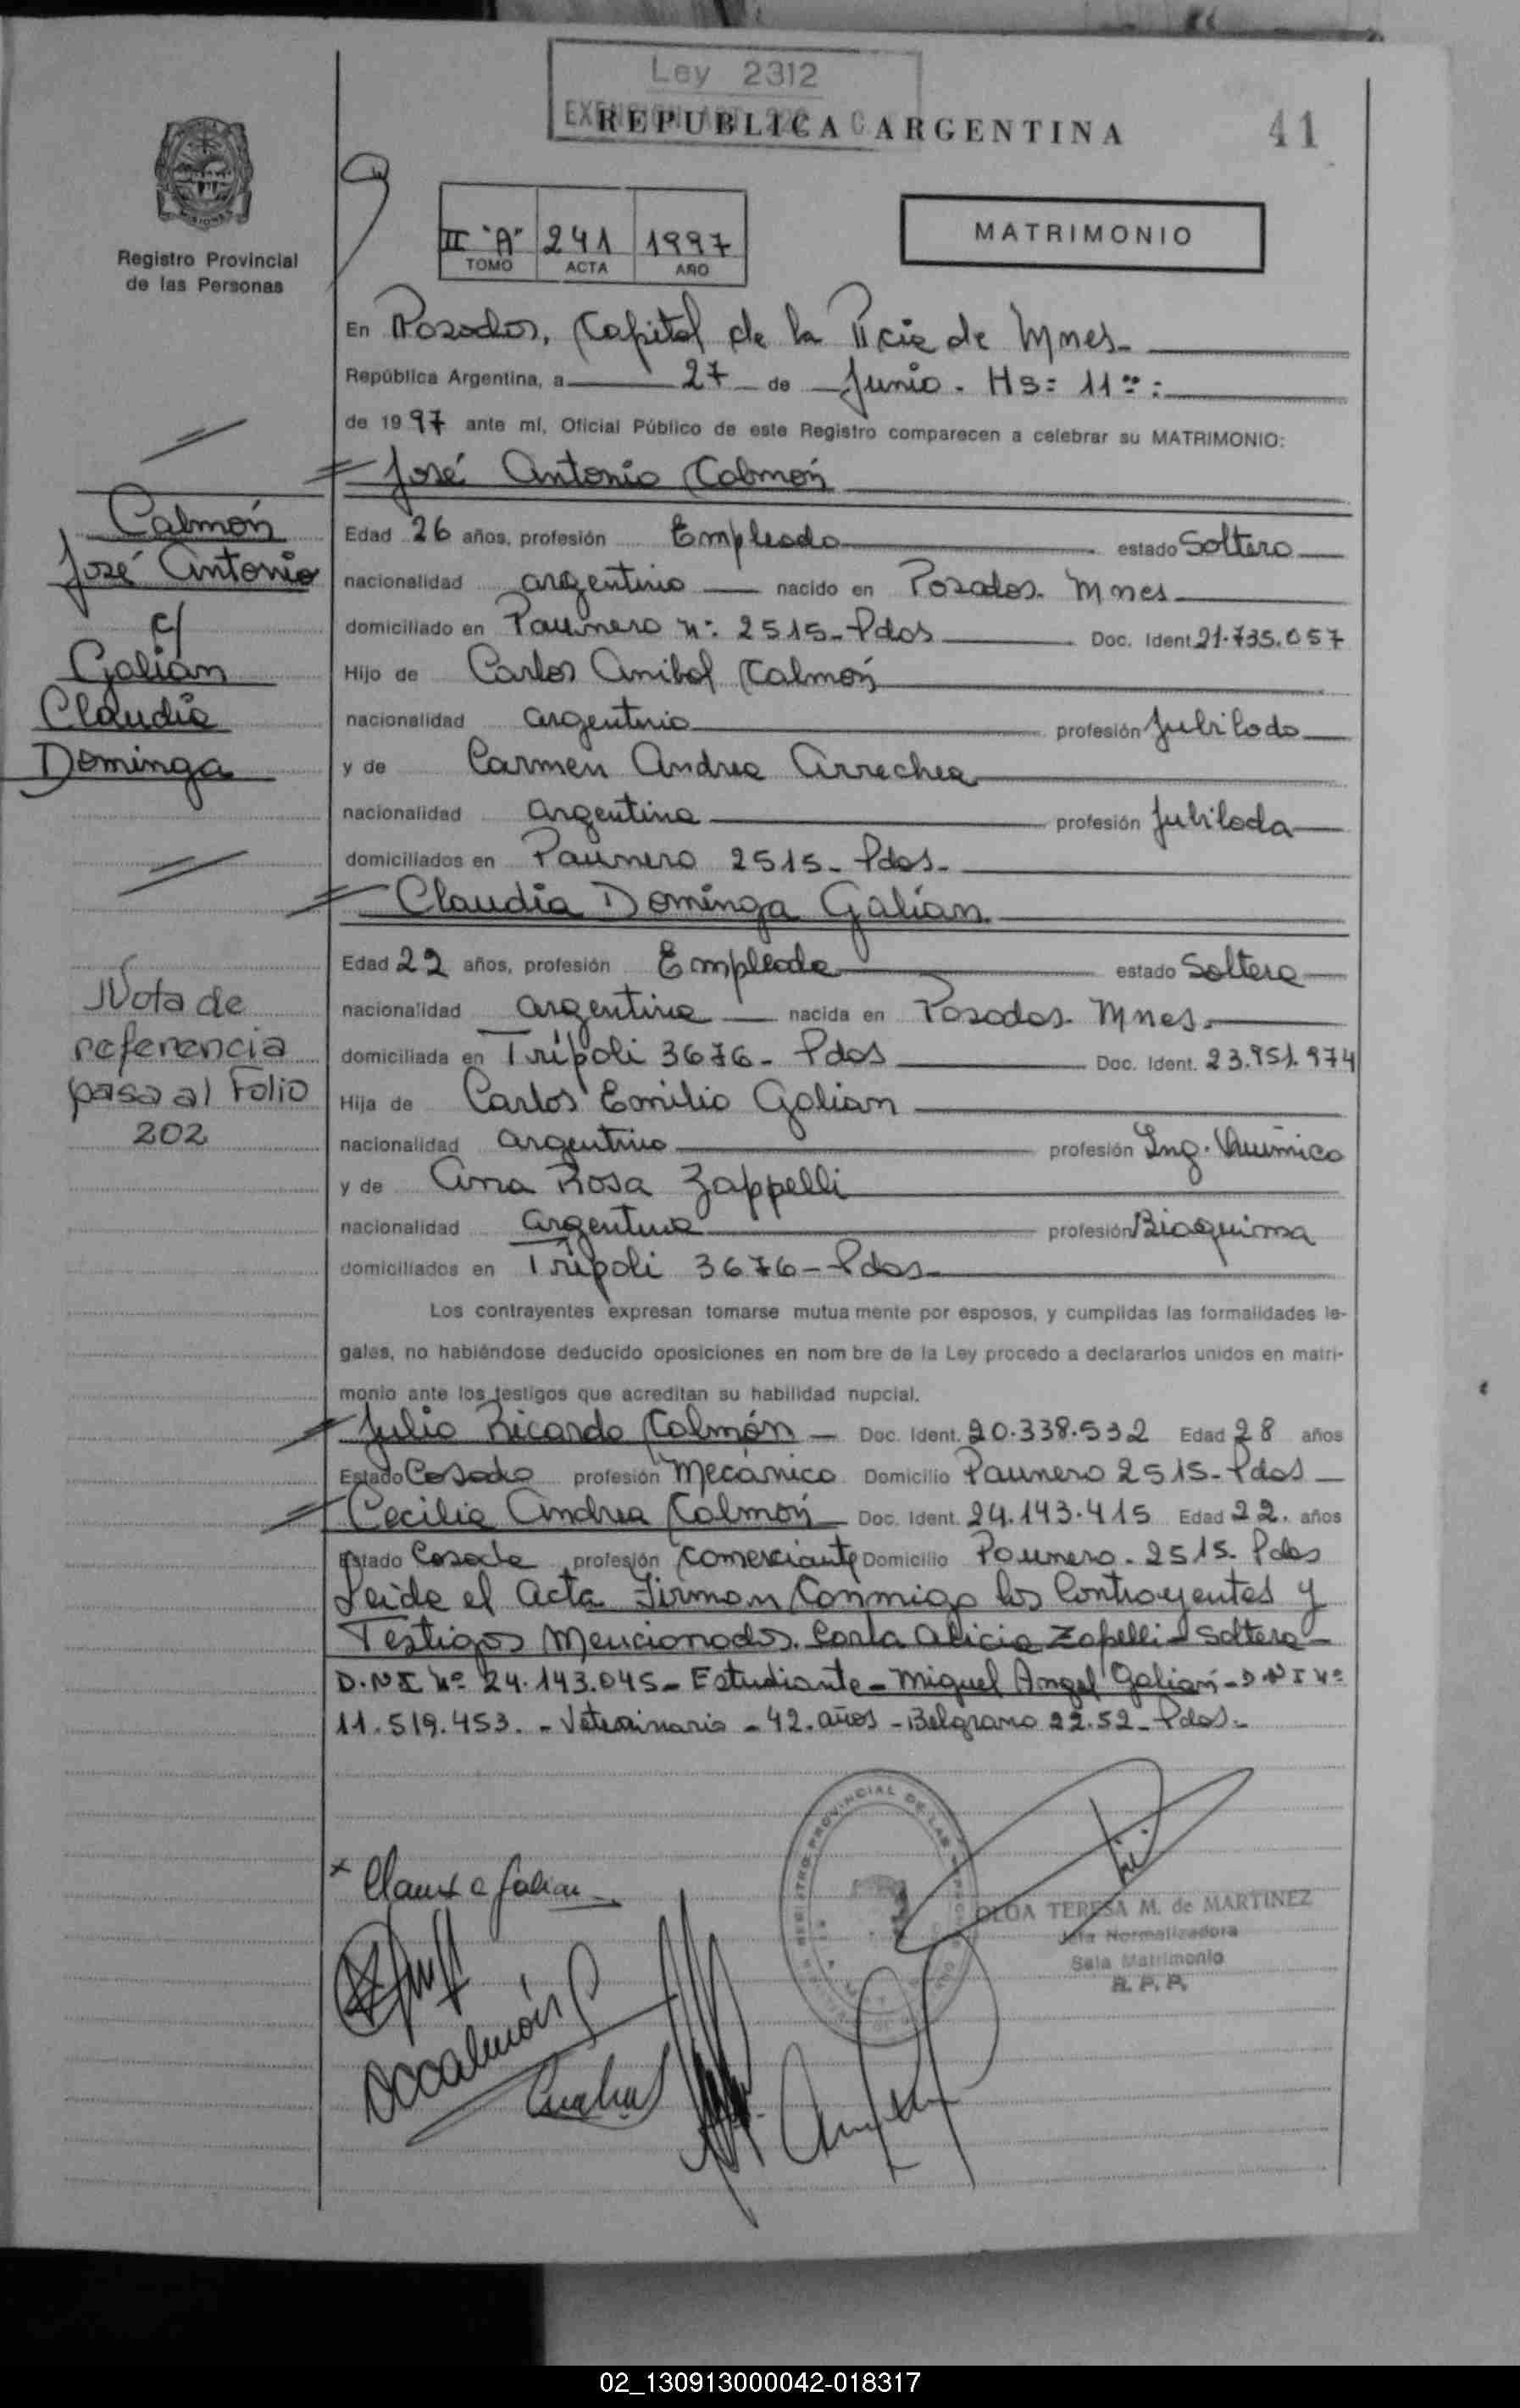 Ley 2312
REPUBLICA ARGENTINA
41
MISIONES
Registro Provincial
de las Personas
II "A" 241 1997
TOMO ACTA AÑO
MATRIMONIO
En Posadas, Capital de la Pcia de Mnes.
República Argentina, a 27 de Junio. Hs: 11:00:
de 1997 ante mí, Oficial Público de este Registro comparecen a celebrar su MATRIMONIO:
José Antonio Calmón
Edad 26 años, profesión Empleado estado Soltero
nacionalidad argentino nacido en Posadas. Mnes
domiciliado en Paunero nº: 2515-Pdas Doc. Ident. 21.735.057
Hijo de Carlos Anibal Calmón
nacionalidad argentino profesión Jubilado
y de Carmen Andrea Arrechea
nacionalidad argentina profesión Jubilada
domiciliados en Paunero 2515- Pdas.
Claudia Dominga Galián
Edad 22 años, profesión Empleada estado Soltera
nacionalidad argentina nacida en Posadas. Mnes.
domiciliada en Trípoli 3676- Pdas Doc. Ident. 23.951.974
Hija de Carlos Emilio Galian
nacionalidad argentino profesión Ing. Químico
y de Ana Rosa Zappelli
nacionalidad argentina profesión Bioquimsa
domiciliados en Trípoli 3676- Pdas-
Los contrayentes expresan tomarse mutua mente por esposos, y cumplidas las formalidades le-
gales, no habiéndose deducido oposiciones en nom bre de la Ley procedo a declararlos unidos en matri-
monio ante los testigos que acreditan su habilidad nupcial.
Julio Ricardo Calmón - Doc. Ident. 20.338.532 Edad 28 años
Estado Casado profesión Mecánico Domicilio Paunero 2515- Pdas
Cecilia Andrea Calmón Doc. Ident. 24.143.415 Edad 22. años
Estado Casada profesión Comerciante Domicilio Paunero. 2515. Pdas
Leida el acta Firman Conmigo los Contrayentes y
Testigos Mencionados. Carla Alicia Zapelli- Soltera-
D.N.I Nº 24.143.045- Estudiante- Miguel Angel Galián- D.N.I Nº
11.519.453. - Veterinario - 42. años - Belgrano 22.52- Pdas.-
Calmón
José Antonio
c/
Galián
Claudia
Dominga
Nota de
referencia
pasa al Folio
202
OLGA TERESA M. de MARTINEZ
Jefa Normalizadora
Sala Matrimonio
R. P. P.
02_130913000042-018317